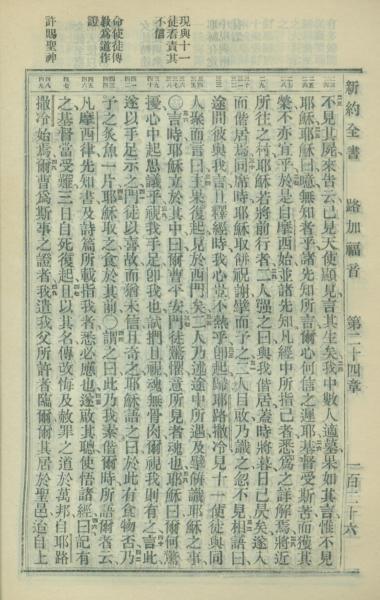 新約全書 路加福音 第二十四章 一百二十六
不見其屍來告云已見天使顯見言其生矣我中數人適墓果如其言惟不見
耶穌耶穌曰噫無知者乎諸先知所言爾心何信之遲耶基督受斯苦而獲其
榮不亦宜乎於是自摩西始並諸先知凡經中所指己者悉爲之詳解焉將近
所往之村耶穌若將前行者二人强之曰與我偕居蓋時將暮日已昃矣遂入
而偕居焉同席時耶穌取餅祝謝擘而予之二人目啟乃識之忽不見相語曰
途間彼與我言且釋經時我心豈不熱乎卽起歸耶路撒冷見十一使徒與同
人聚而言曰主果復起見於西門矣二人乃述途中所遇及擘餅識耶穌之事
〇言時耶穌立於其中曰爾曹平安門徒驚懼意所見者魂也耶穌曰爾何驚
擾心中起思議乎視我手足卽我也試捫且視魂無骨肉爾視我則有之言此
遂以手足示之門徒以喜故而猶未信且奇之耶穌語之曰於此有食物否乃
予之炙魚一片耶穌取之食於其前〇謂之曰此乃我素偕爾時所語爾者云
凡摩西律先知書及詩篇所載指我者悉必應也遂啟其聰使悟諸經曰記有
之基督當受難三日自死復起且以其名傳改悔及赦罪之道於萬邦自耶路
撒冷始焉爾曹爲斯事之證者我遣我父所許者臨爾爾其居於聖邑迨自上
現與十一
徒看責其
不信
命使徒傳
教爲道作
證
許賜聖神